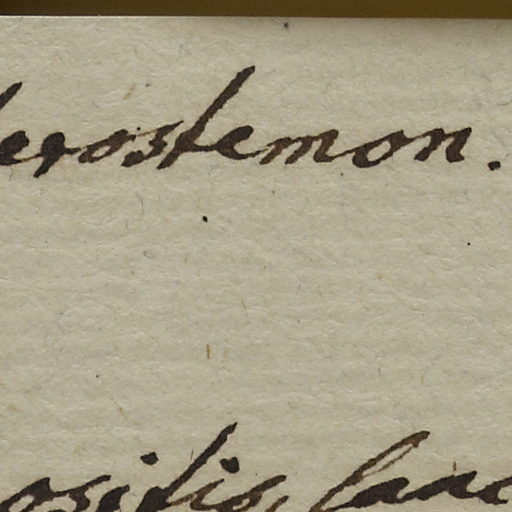 terostemon.
ositis, lanc